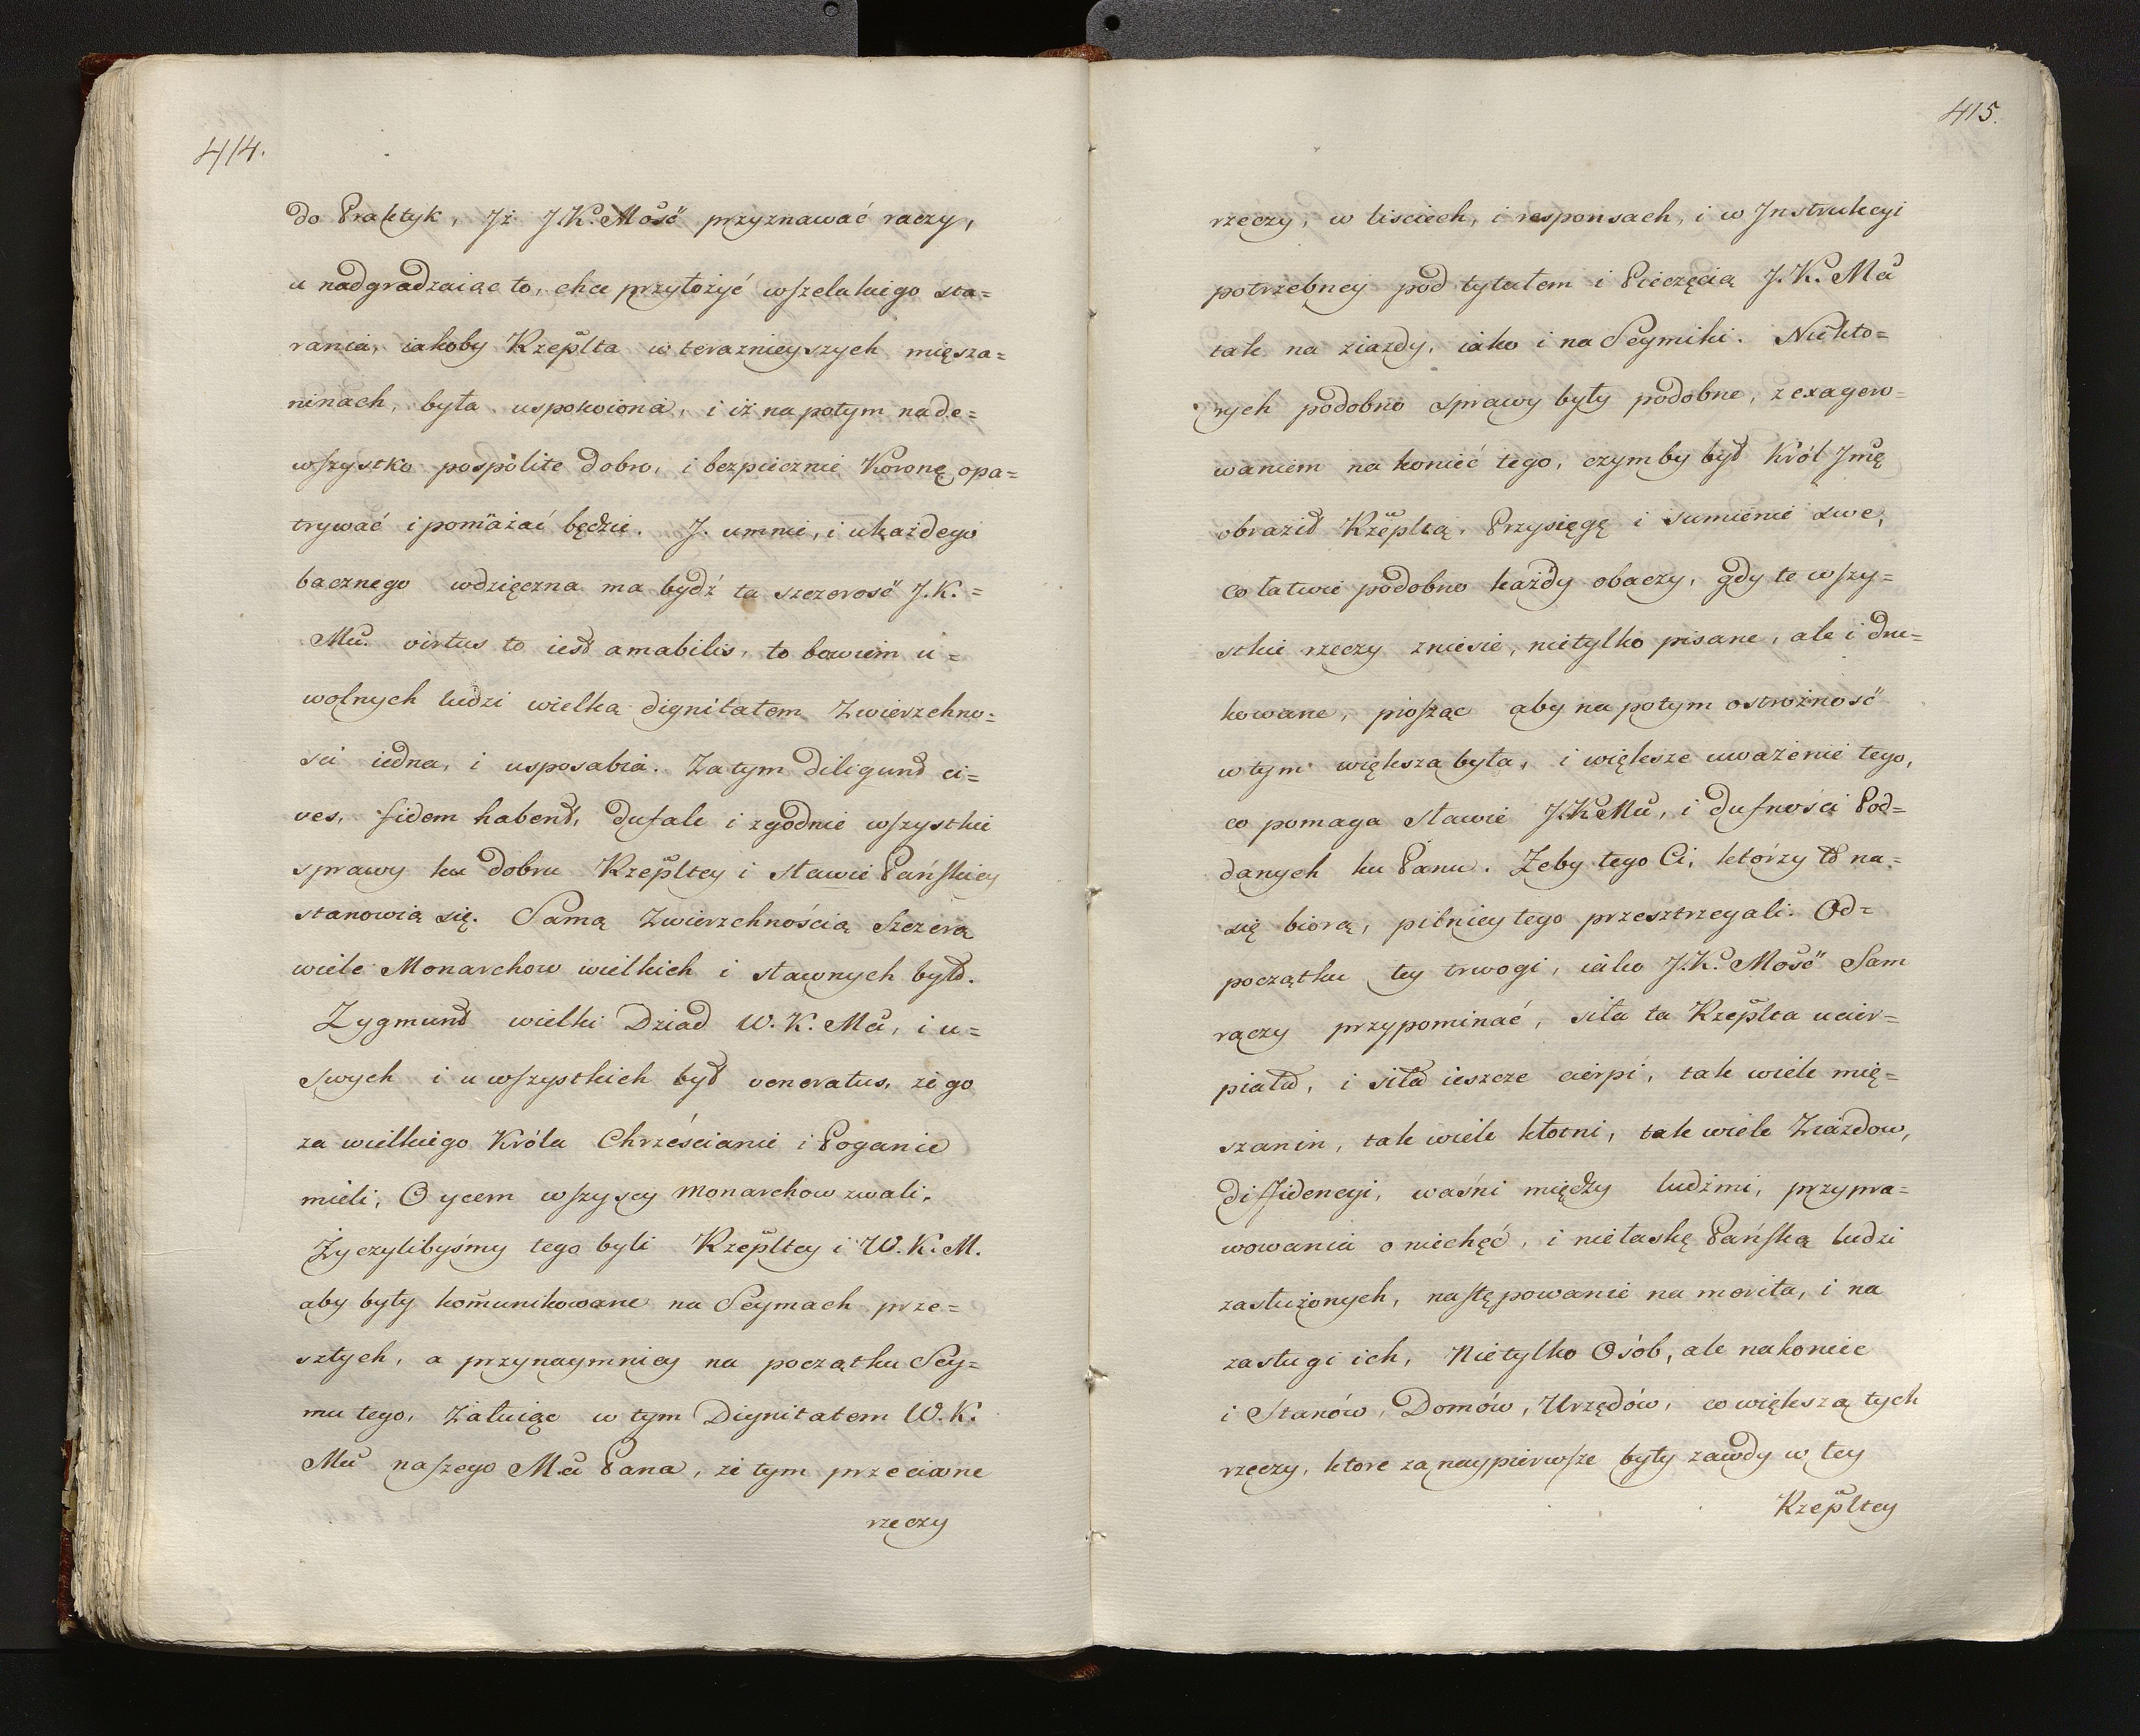 414.
do Praktyk, Jż J.K. Mość przyznawać raczy,
u nadgradzaiąc to, chce przyłożyć wszelakiego sta=
rania, iakoby Rzeplta w teraznieyszych mięsza=
ninach, była uspokoiona, i iż na potym nade=
wszystko pospolite dobro, i bezpiecznie Koronę opa=
trywać i pomażać będzie. J. umnie, i ukażdego
bacznego wdzięczna ma bydź ta szczerość J.K.=
Mci. virtus to iest amabilis, to bowiem u=
wolnych ludzi wielką dignitatem Zwierzchno=
sci iedna, i usposabia. Zatym diligunt ci=
ves, fidem habent, dufale i zgodnie wszystkie
sprawy ku dobru Rzepltey i sławie Pańskiey
stanowią się. Samą Zwierzchnością Szczerą
wiele Monarchow wielkich i sławnych było.
Zygmunt wielki Dziad W.K. Mci, i u=
swych i u wszystkich był veneratus, że go
za wielkiego Króla Chrześcianie i Poganie
mieli, Oycem wszyscy Monarchow zwali.
Życzylibyśmy tego byli Rzepltey i W.K.M.
aby były komunikowane na Seymach prze=
szłych, a przynaymniey na początku Sey=
mu tego, żałuiąc w tym Dignitatem W.K.
Mci naszego Mci Pana, że tym przeciwne
rzeczy
415.
rzeczy, w lisciech, i responsach, i w Jnstrukcyi
potrzebney pod tytułem i Pieczęcią J.K. Mci
tak na ziazdy, iako i na Seymiki. Niekto=
rych podobno sprawy były podobne, z exagero=
waniem na konieć tego, czymby był Król Jmę
obraził Rzepltą, Przysięgę i sumienie swe,
co łatwie podobno każdy obaczy, gdy te wszy=
stkie rzeczy zniesie, nietylko pisane, ale i dru=
kowane, prosząc aby na potym ostrożność
w tym większa była, i większe uważenie tego,
co pomaga sławie J.K.Mci, i dufności Pod=
danych ku Panu. Żeby tego Ci, którzy to na=
się biorą, pilniey tego przesztrzegali. Od=
początku tey trwogi, iako J.K. Mość Sam
raczy przypominać, siła ta Rzeplta ucier=
piała, i siła ieszcze cierpi, tak wiele mię=
szanin, tak wiele kłotni, tak wiele Ziazdow,
diffidencyi, waśni między ludźmi, przypra=
wowania o niechęć, i niełaskę Pańską ludzi
zasłużonych, następowanie na merita, i na
zasługi ich, Nietylko Osób, ale nakoniec
i Stanów, Domów, Urzędów, co większa tych
rzeczy, ktore za naypierwsze były zawdy w tey
Rzepltey